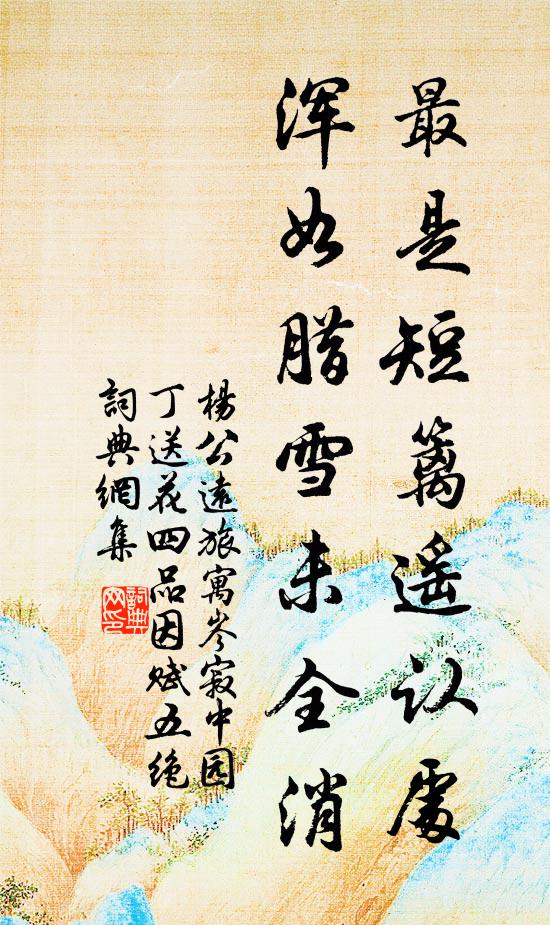 最是短篱遥认處
浑如腊雪未全消
楊公遠旅寓岑寂中园
丁送花四品因赋五绝
詞典網集
詞典网印